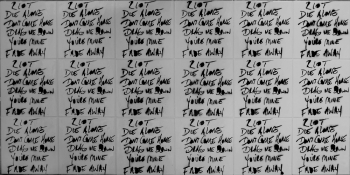 RIOT
DIE ALONE
DON'T COME HOME
DRAG ME DOWN
YOU'RE MINE
FADE AWAY
RIOT
DIE ALONE
DON'T COME HOME
DRAG ME DOWN
YOU'RE MINE
FADE AWAY
RIOT
DIE ALONE
DON'T COME HOME
DRAG ME DOWN
YOU'RE MINE
FADE AWAY
RIOT
DIE ALONE
DON'T COME HOME
DRAG ME DOWN
YOU'RE MINE
FADE AWAY
RIOT
DIE ALONE
DON'T COME HOME
DRAG ME DOWN
YOU'RE MINE
FADE AWAY
RIOT
DIE ALONE
DON'T COME HOME
DRAG ME DOWN
YOU'RE MINE
FADE AWAY
RIOT
DIE ALONE
DON'T COME HOME
DRAG ME DOWN
YOU'RE MINE
FADE AWAY
RIOT
DIE ALONE
DON'T COME HOME
DRAG ME DOWN
YOU'RE MINE
FADE AWAY
RIOT
DIE ALONE
DON'T COME HOME
DRAG ME DOWN
YOU'RE MINE
FADE AWAY
RIOT
DIE ALONE
DON'T COME HOME
DRAG ME DOWN
YOU'RE MINE
FADE AWAY
RIOT
DIE ALONE
DON'T COME HOME
DRAG ME DOWN
YOU'RE MINE
FADE AWAY
RIOT
DIE ALONE
DON'T COME HOME
DRAG ME DOWN
YOU'RE MINE
FADE AWAY
RIOT
DIE ALONE
DON'T COME HOME
DRAG ME DOWN
YOU'RE MINE
FADE AWAY
RIOT
DIE ALONE
DON'T COME HOME
DRAG ME DOWN
YOU'RE MINE
FADE AWAY
RIOT
DIE ALONE
DON'T COME HOME
DRAG ME DOWN
YOU'RE MINE
FADE AWAY
RIOT
DIE ALONE
DON'T COME HOME
DRAG ME DOWN
YOU'RE MINE
FADE AWAY
RIOT
DIE ALONE
DON'T COME HOME
DRAG ME DOWN
YOU'RE MINE
FADE AWAY
RIOT
DIE ALONE
DON'T COME HOME
DRAG ME DOWN
YOU'RE MINE
FADE AWAY